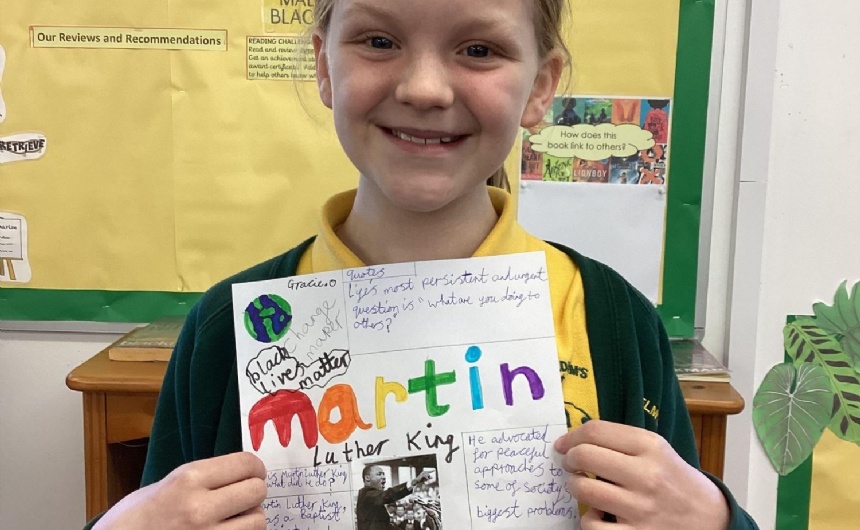 Our Reviews and Recommendations
BLAC
READING CHALLEN
Read and review
Get an achievement
award certificate
to help others
RETRIEVE
How does this
book link to others?
LIONBOY
Gracie.O
change
maker
Black
Lives
matter
quotes
Life's most persistent and urgent
question is "what are you doing to
others?"
martin
Luther King
is Martin Luther King
what did he do?
Martin Luther King
was a baptist
He advocated
for peaceful
approaches to
some of society's
biggest problems.